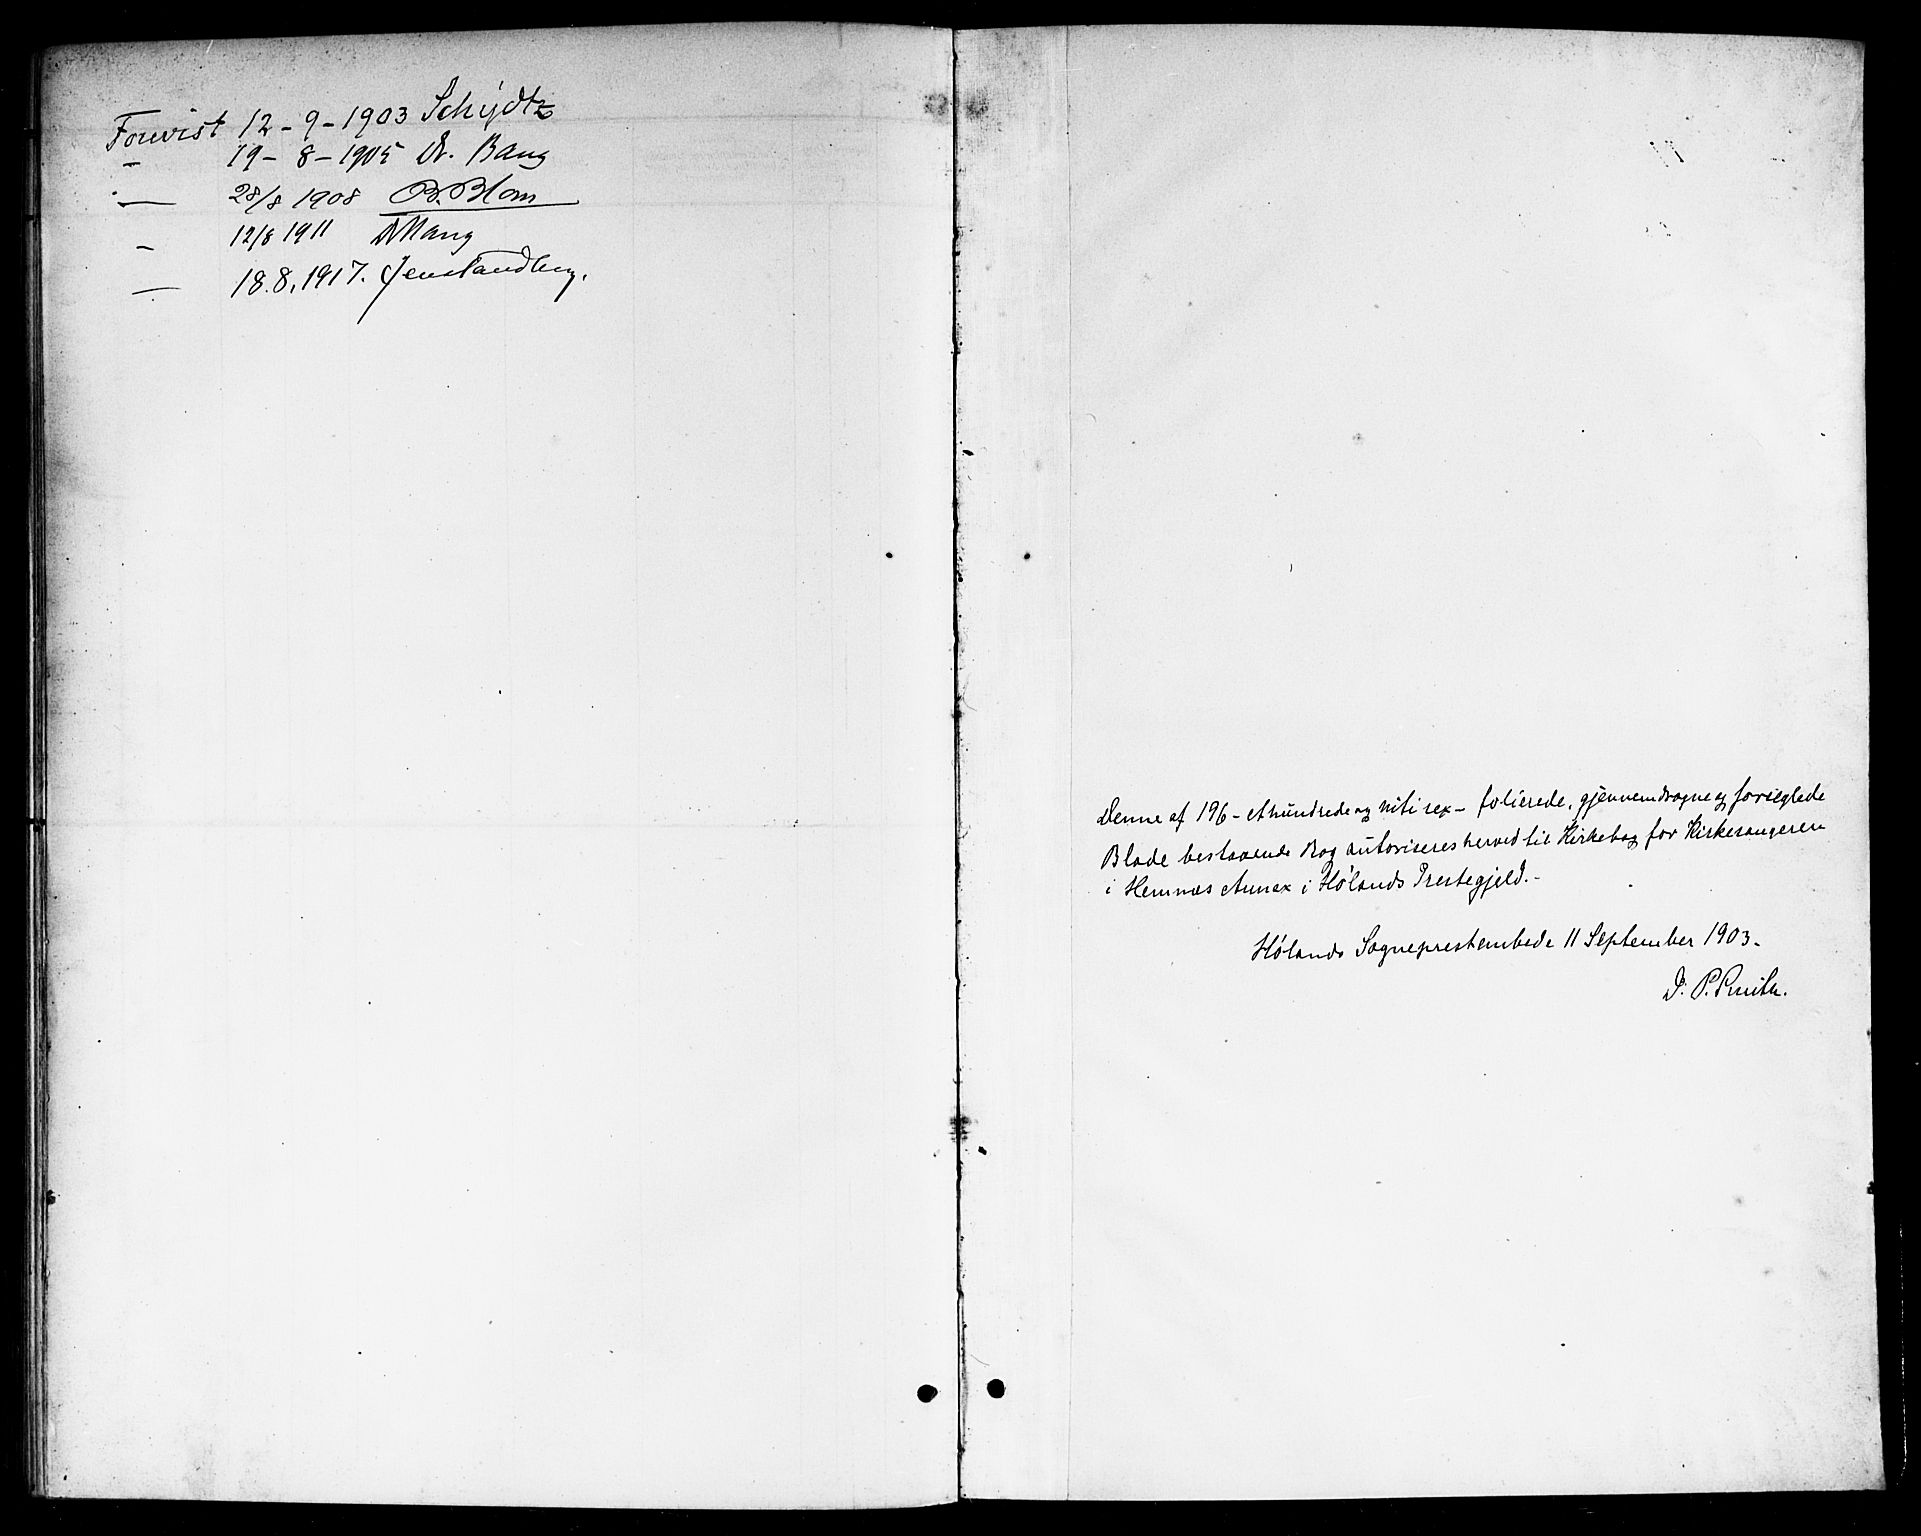 Forevist 12-9-1903 Schydtz
- 19-8-1905 Dr. Bang
— 28/8 1908 B. Blom
- 12/8 1911
— 18.8.1917. Jens Tandberg.
Denne af 196 - ethundrede og niti sex - folierede, gjennemdragne og forseglede
Blade bestaaende Bog autoriseres herved til Kirkebog for Kirkesangeren
i Hemnæs Annex i Hølands Prestegjeld.-
Hølands Sogneprestembede 11 September 1903.
J. P. Smith.